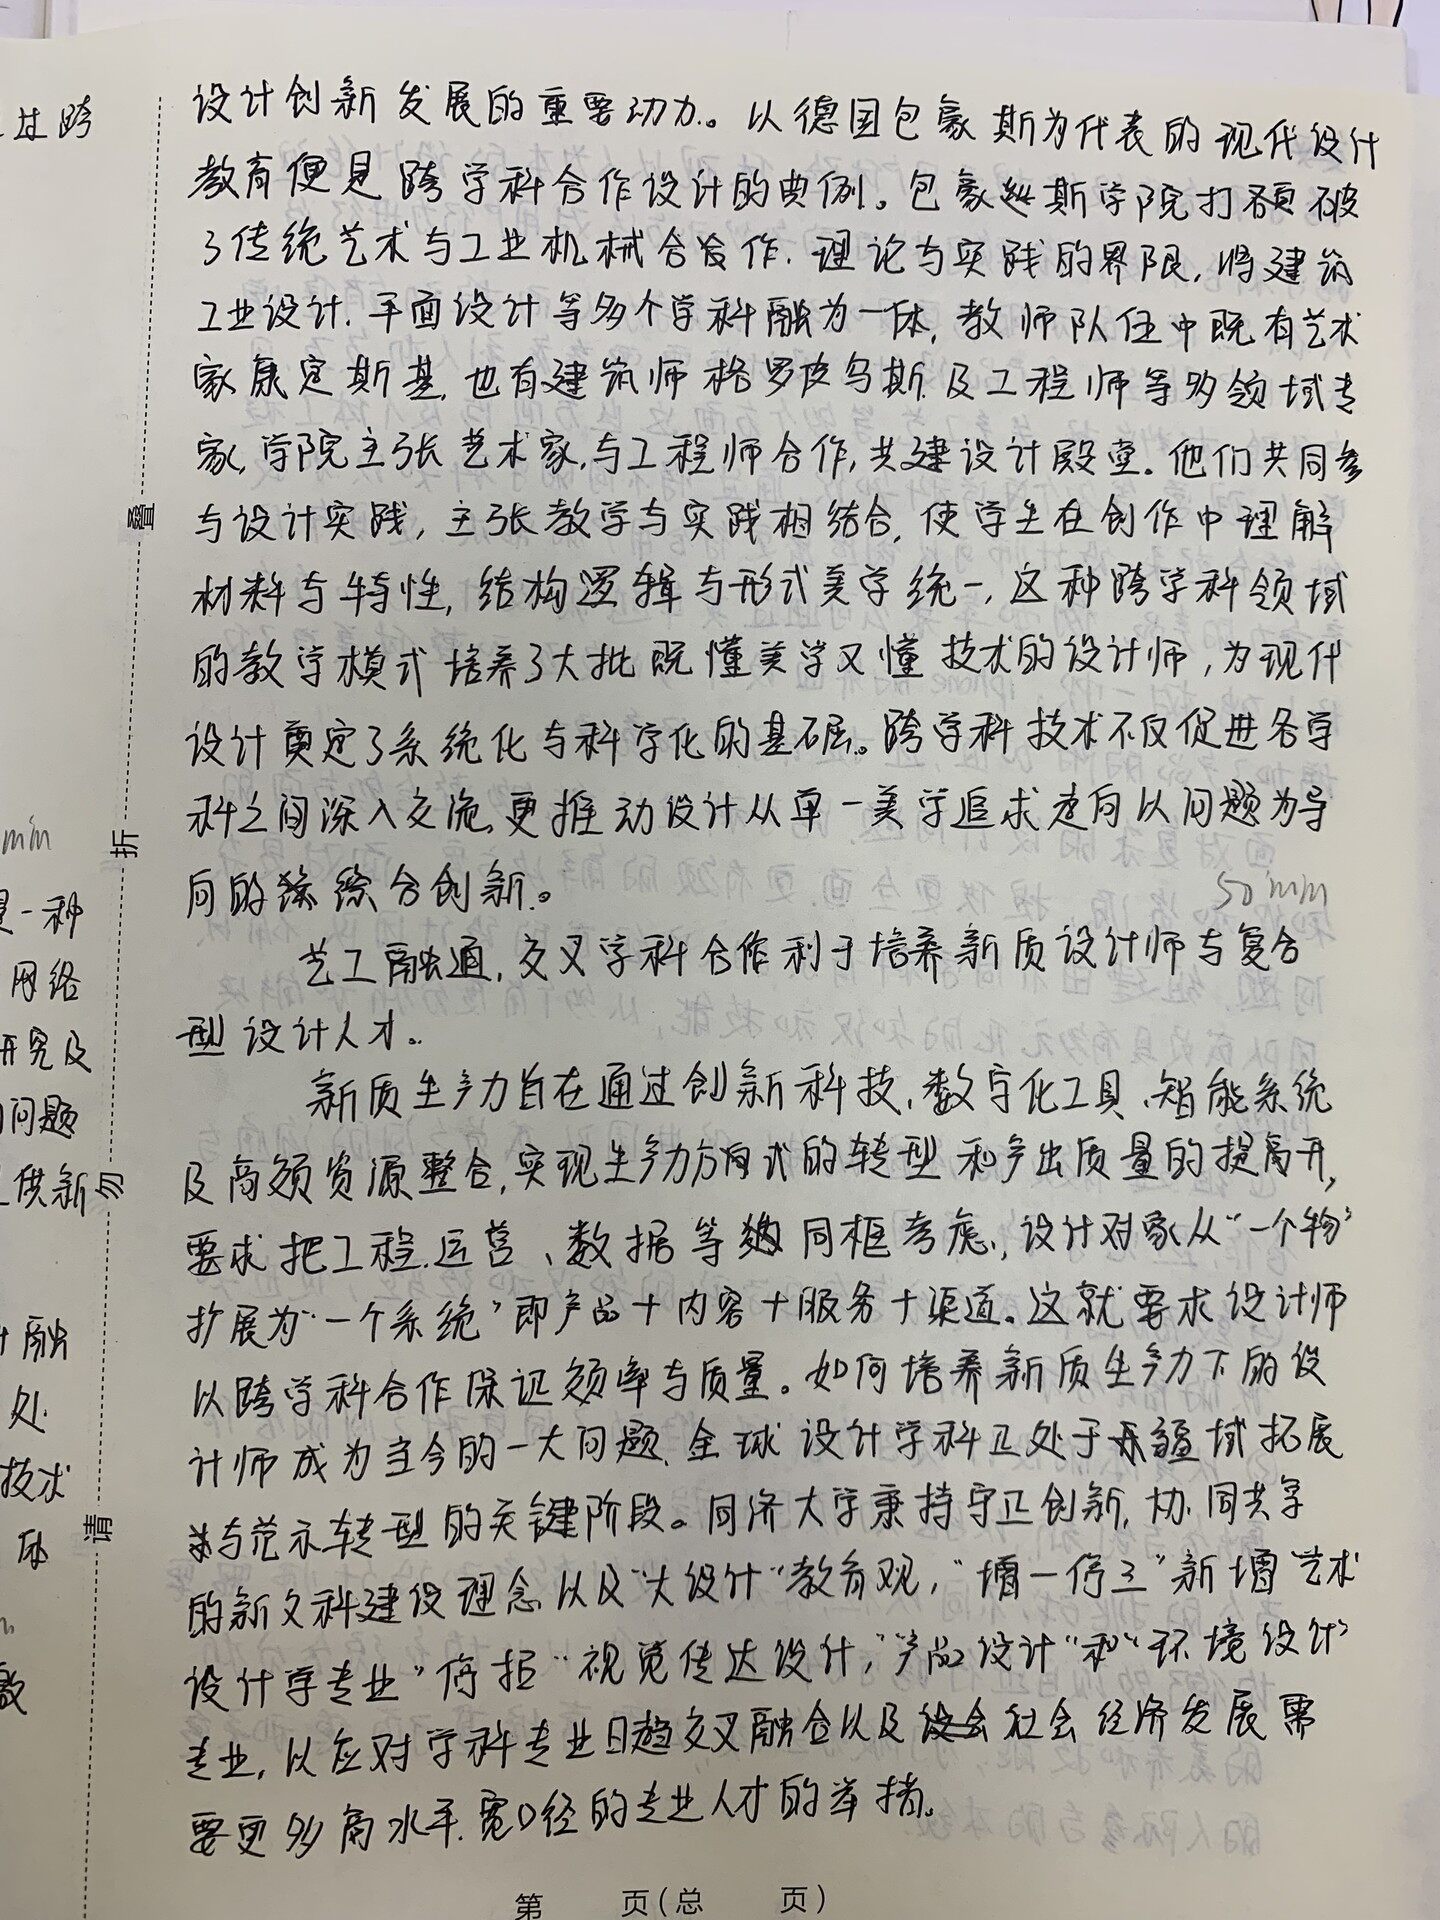 设计创新发展的重要动力。以德国包豪斯为代表的现代设计
教育便是跨学科合作设计的典例。包豪斯学院打破
了传统艺术与工业机械合作、理论与实践的界限，将建筑
工业设计、平面设计等多个学科融为一体，教师队伍中既有艺术
家康定斯基，也有建筑师格罗皮乌斯及工程师等多领域专
家，学院主张艺术家与工程师合作，共建设计殿堂。他们共同参
与设计实践，主张教学与实践相结合，使学生在创作中理解
材料与特性，结构逻辑与形式美学统一，这种跨学科领域
的教学模式培养了大批既懂美学又懂技术的设计师，为现代
设计奠定了系统化与科学化的基石。跨学科技术不仅促进各学
科之间深入交流，更推动设计从单一美学追求走向以问题为导
向的综合创新。
50mm
艺工融通，交叉学科合作利于培养新质设计师与复合
型设计人才。
新质生产力旨在通过创新科技、数字化工具、智能系统
及高频资源整合，实现生产力方式的转型和产出质量的提高升，
要求把工程、运营、数据等同框考虑，设计对象从“一个物”
扩展为“一个系统”即产品+内容+服务+渠道。这就要求设计师
以跨学科合作保证频率与质量。如何培养新质生产力下的设
计师成为当今的一大问题，全球设计学科正处于疆域拓展
与范示转型的关键阶段。同济大学秉持守正创新，协同共享
的新文科建设理念以及“大设计”教育观，“增一停三”新增“艺术
设计学专业”停招“视觉传达设计”，“产品设计”和“环境设计”
专业，以应对学科专业日趋交叉融合以及社会经济发展需
要更多高水平、宽口径的专业人才的举措。
第 页（总 页）
过跨
mm
是一种
网络
研究及
问题
供新
融
处
技术
叠
折
勿
请